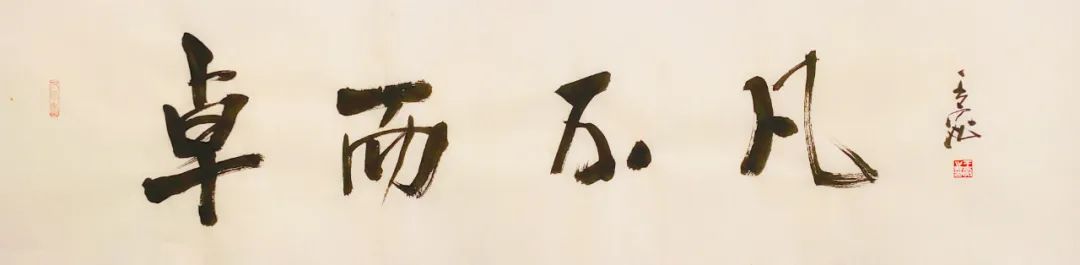 卓而不凡